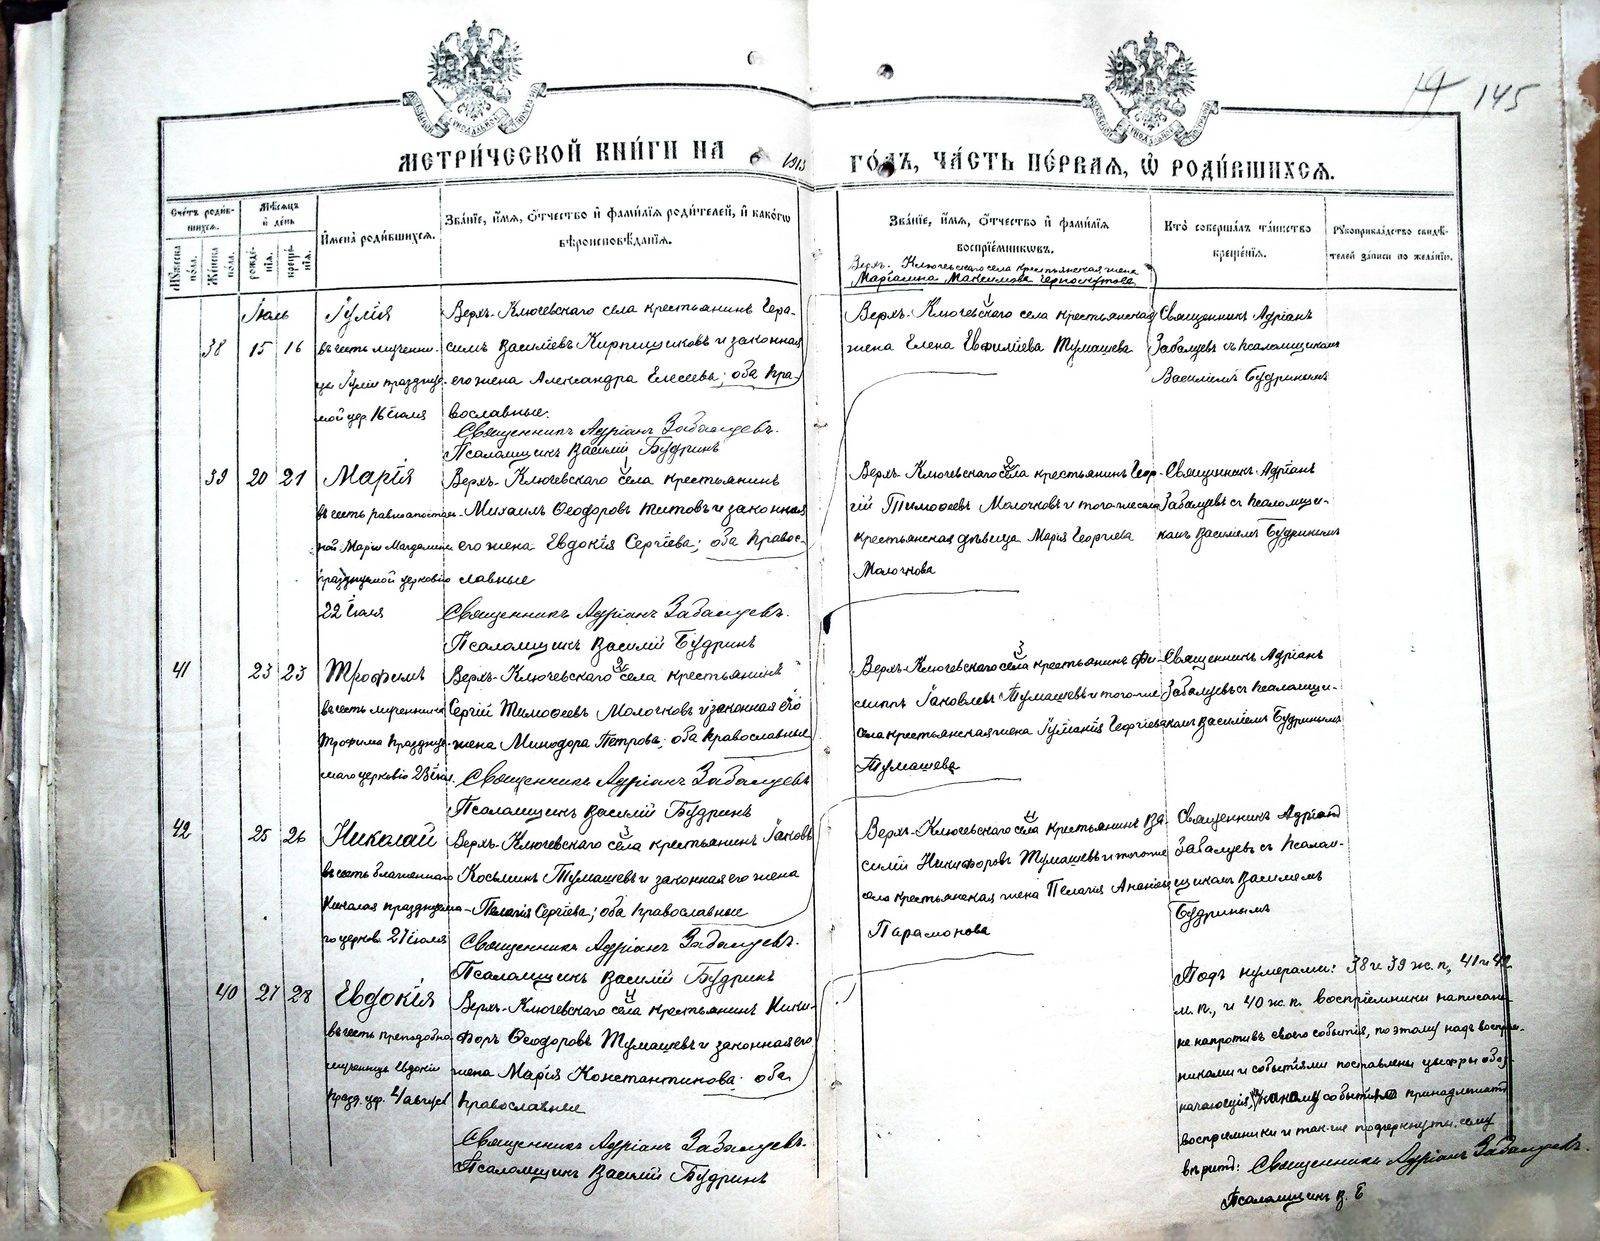 145
МЕТРИ́ЧЕСКОЙ КНИ́ГИ НА 1913 ГО́ДЪ, ЧА́СТЬ ПЕ́РВАЯ, Ѡ РОДИ́ВШИХСѦ.
Сче́тъ роди́вшихсѧ.
Мꙋ́жеска по́ла.
Же́нска по́ла.
Мѣ́сѧцъ и де́нь
рожде́нїѧ.
креще́нїѧ.
И҆мена̀ роди́вшихсѧ.
Зва́нїе, и҆́мѧ, ѻ҆́тчество и҆ фами́лїѧ роди́телей, и҆ како́гѡ вѣроисповѣ́данїѧ.
Зва́нїе, и҆́мѧ, ѻ҆́тчество и҆ фами́лїѧ воспрїе́мникѡвъ.
Кто̀ соверша́лъ та́инство креще́нїѧ.
Рꙋкоприкла́дство свидѣ́телей за́писи по жела́нїю.
Верхъ-Ключевскаго села крестьянская жена
Марiамна Максимова Черноскутова
Iюль
38 15 16
Iулiя
въ честь мучени-
цы Iулiи праздну-
мой цер. 16 iюля
Верхъ-Ключевскаго села крестьянинъ Гера-
симъ Василiевъ Кирпищиковъ и законная
его жена Александра Елисеева; оба пра-
вославные.
Священникъ Адрiанъ Забалуевъ.
Псаломщикъ Василiй Будринъ
1
Верхъ-Ключевскаго села крестьянская
жена Елена Евфимiева Тумашева
Священникъ Адрiанъ
Забалуевъ съ псаломщикомъ
Василiемъ Будринымъ
39 20 21
Марiя
въ честь равноапостоль-
ной Марiи Магдалины
празднуемой церковiю
22 iюля
1
Верхъ-Ключевскаго села крестьянинъ
Михаилъ Ѳеодоровъ Титовъ и законная
его жена Евдокiя Сергiева; оба правос-
славные
Священникъ Адрiанъ Забалуевъ.
Псаломщикъ Василiй Будринъ
2
Верхъ-Ключевскаго села крестьянинъ Геор-
гiй Тимоѳеевъ Молочковъ и того же села
крестьянская дѣвица Марiя Георгiева
Молочкова
Священникъ Адрiанъ
Забалуевъ съ псаломщи-
комъ Василiемъ Будринымъ
41 23 23
Трофимъ
въ честь мученника
Трофима праздну-
маго церковiю 23 iюл.
2
Верхъ-Ключевскаго села крестьянинъ
Сергiй Тимоѳеевъ Молочковъ и законная его
жена Минодора Петрова; оба православные
Священникъ Адрiанъ Забалуевъ
Псаломщикъ Василiй Будринъ
3
Верхъ-Ключевскаго села крестьянинъ Фи-
липпъ Iаковлевъ Тумашевъ и того же
села крестьянская жена Iуманiя Георгiева
Тумашева
Священникъ Адрiанъ
Забалуевъ съ псаломщи-
комъ Василiемъ Будринымъ
42 25 26
Николай
въ честь блаженнаго
Николая празднуема-
го церков. 27 iюля
3
Верхъ-Ключевскаго села крестьянинъ Iаковъ
Косьминъ Тумашевъ и законная его жена
Пелагiя Сергiева; оба православные
Священникъ Адрiанъ Забалуевъ.
Псаломщикъ Василiй Будринъ
4
Верхъ-Ключевскаго села крестьянинъ Ва-
силiй Никифоровъ Тумашевъ и того же
села крестьянская жена Пелагiя Ананiева
Парамонова
Священникъ Адрiанъ
Забалуевъ съ псалом-
щикомъ Василiемъ
Будринымъ
40 27 28
Евдокiя
въ честь преподобно-
мученицы Евдокiи
празд. цер. 4 август
4
Верхъ-Ключевскаго села крестьянинъ Ники-
форъ Ѳеодоровъ Тумашевъ и законная его
жена Марiя Константинова; оба
православные
Священникъ Адрiанъ Забалуевъ.
Псаломщикъ Василiй Будринъ
Подъ нумерами: 38 и 39 ж. п., 41 и 42
м. п., и 40 ж. п. воспрiемники написаны
не напротивъ своего событiя, поэтому надъ воспрiем-
никами и событiями поставлены цыфры обоз-
начающiя, къ какому событiю принадлежатъ
воспрiемники и также подчеркнуты. сему
вѣрить: Священникъ Адрiанъ Забалуевъ.
Псаломщикъ В. Б